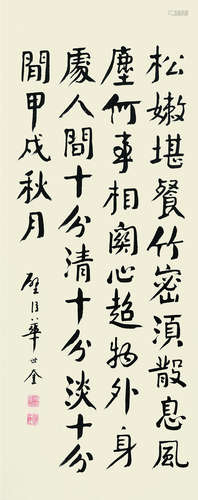 松嫩堪餐竹密須散息風
塵何事相關心超物外身
處人間十分清十分淡十分
閒甲戌秋月
華世奎